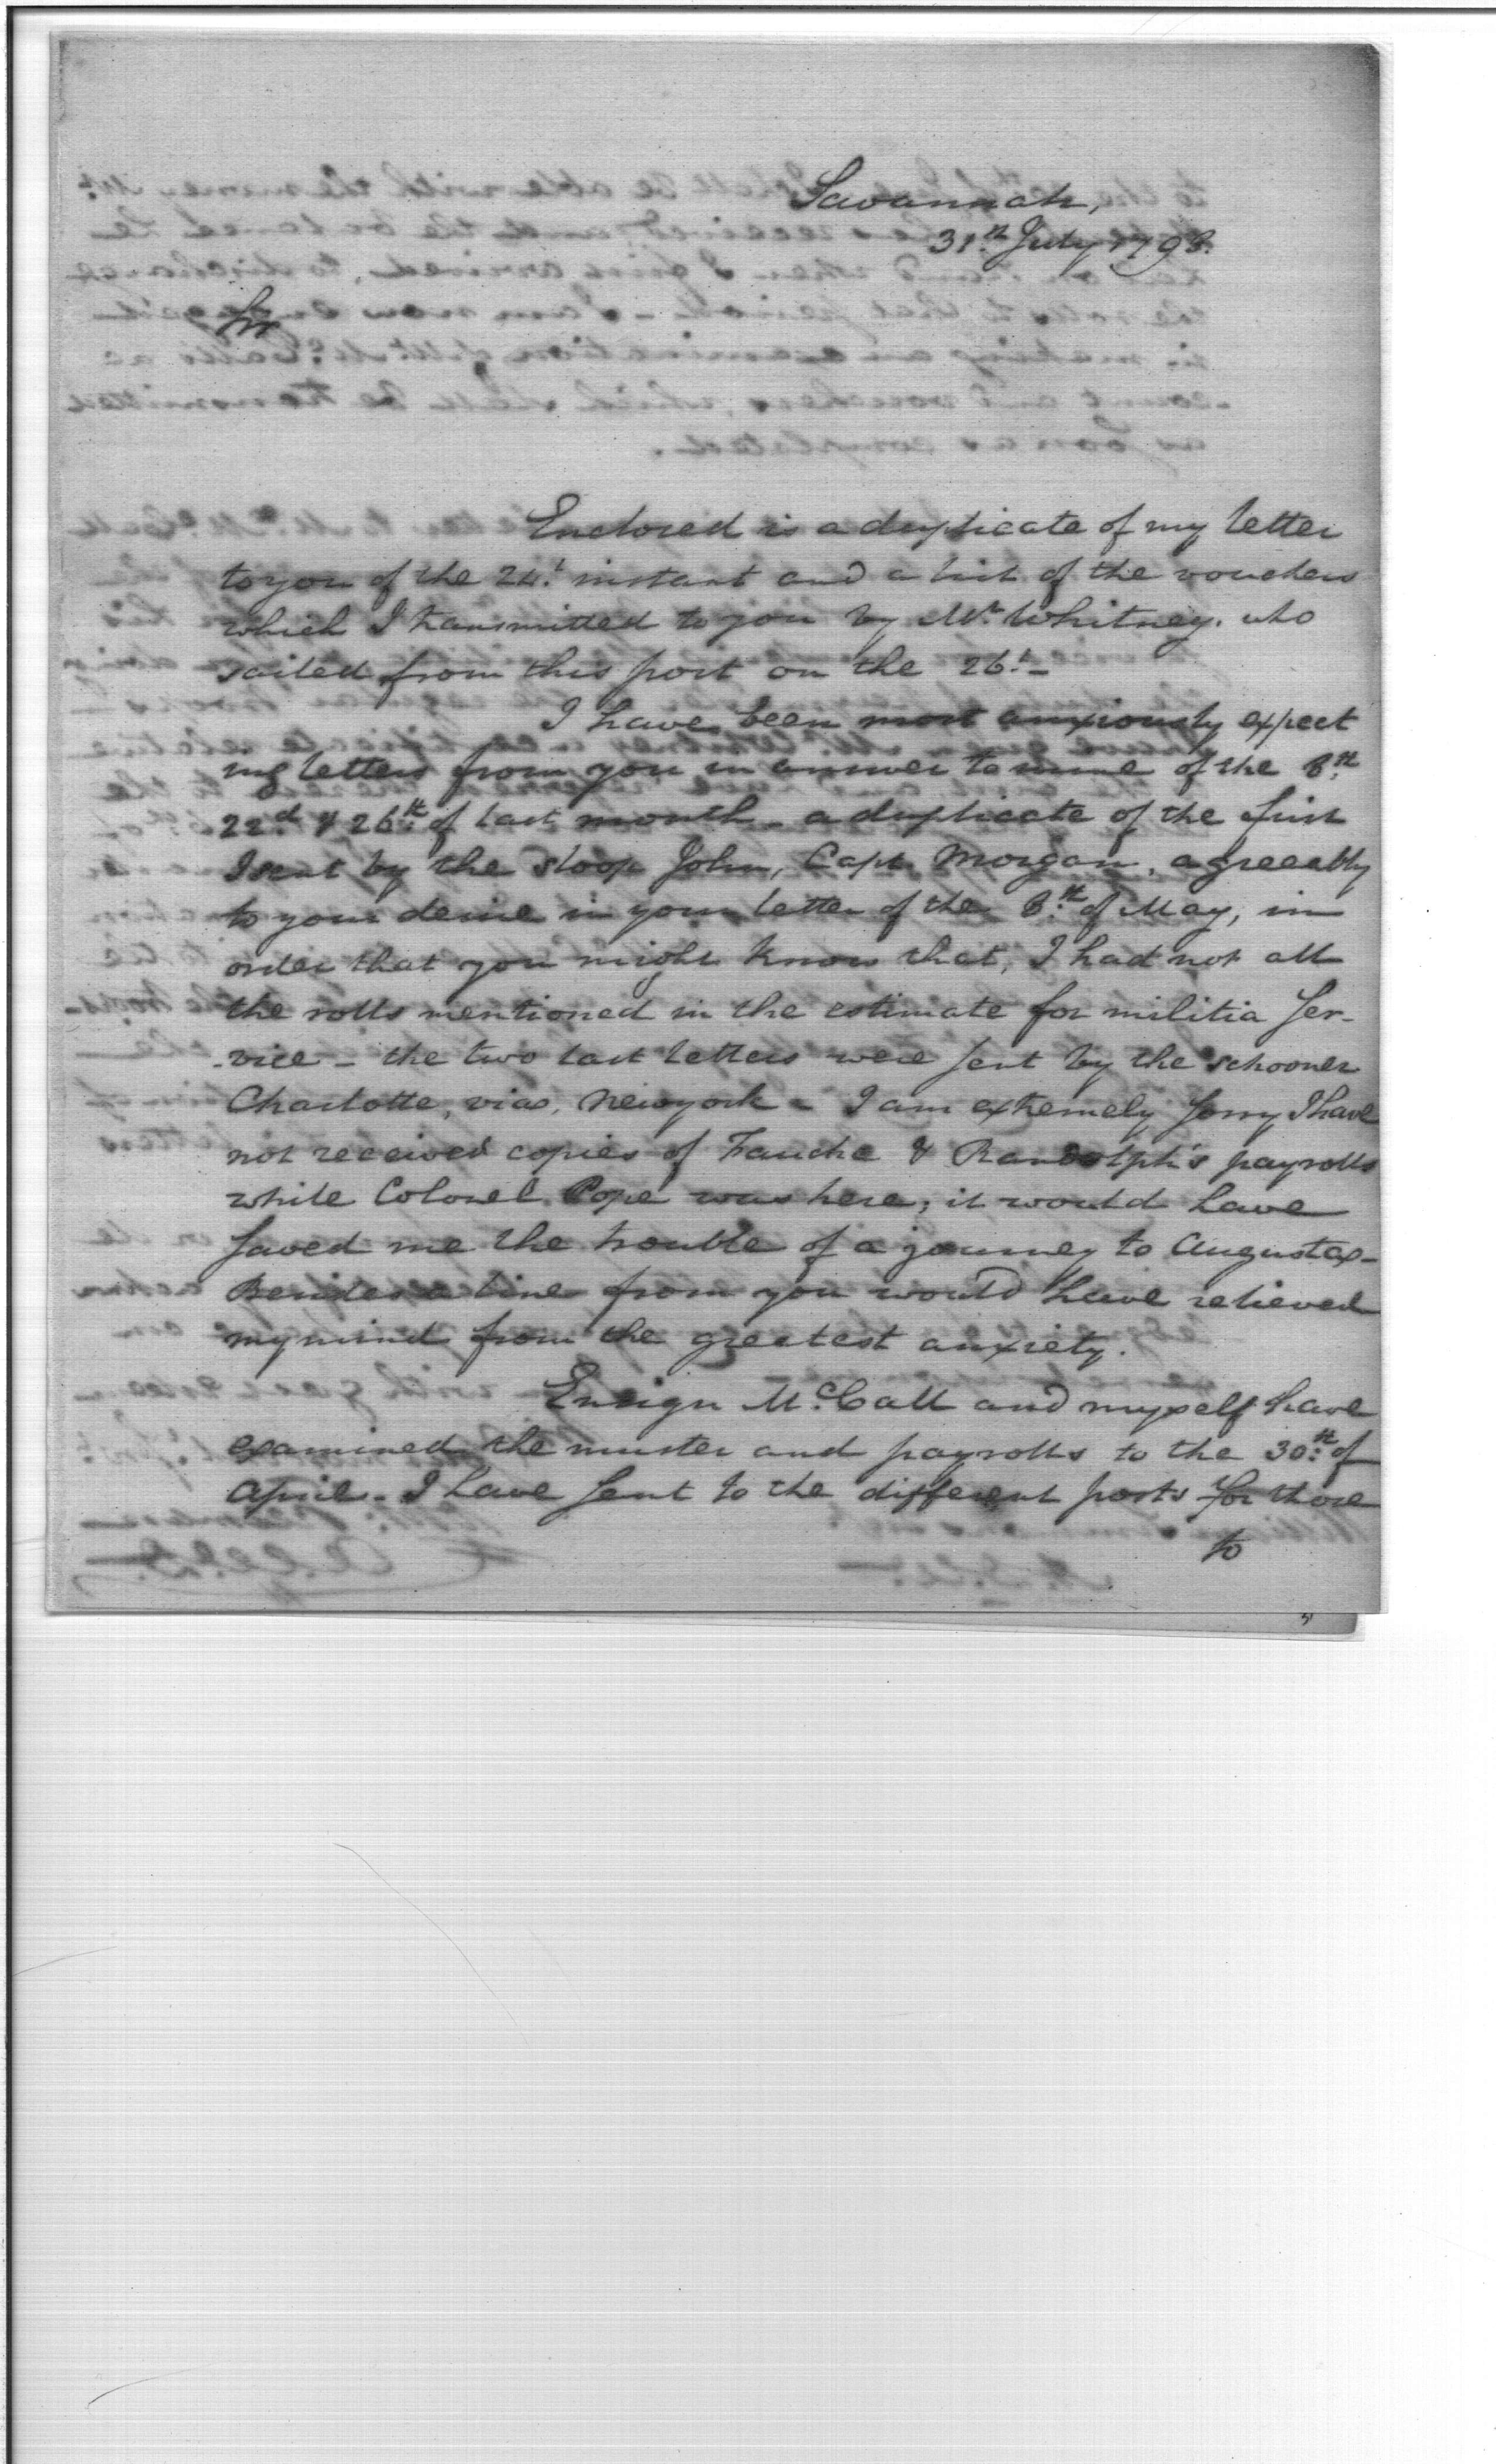 Savannah,
31.st July 1798.
Sir
Enclosed is a duplicate of my letter
to you of the 24.t instant and a list of the vouchers
which I transmitted to you by Mr. Whitney, who
sailed from this port on the 26.t -
I have been most anxiously expect
ing letters from you in answer to mine of the 8.th
22.d & 26.th of last month - a duplicate of the first
I sent by the sloop John, Capt. Morgan, agreeably
to your desire in your letter of the 8.th of May, in
order that you might know that, I had not all
the rolls mentioned in the estimate for militia Ser-
-vice - the two last letters were sent by the schooner
Charlotte, via, Newyork - I am extremely sorry I have
not received copies of Fauche & Randolph's payrolls
while Colonel Pope was here; it would have
saved me the trouble of a journey to Augusta -
Besides a line from you would have relieved
my mind from the greatest anxiety.
Ensign McCall and myself have
examined the muster and payrolls to the 30.th of
April - I have sent to the different posts for those
to